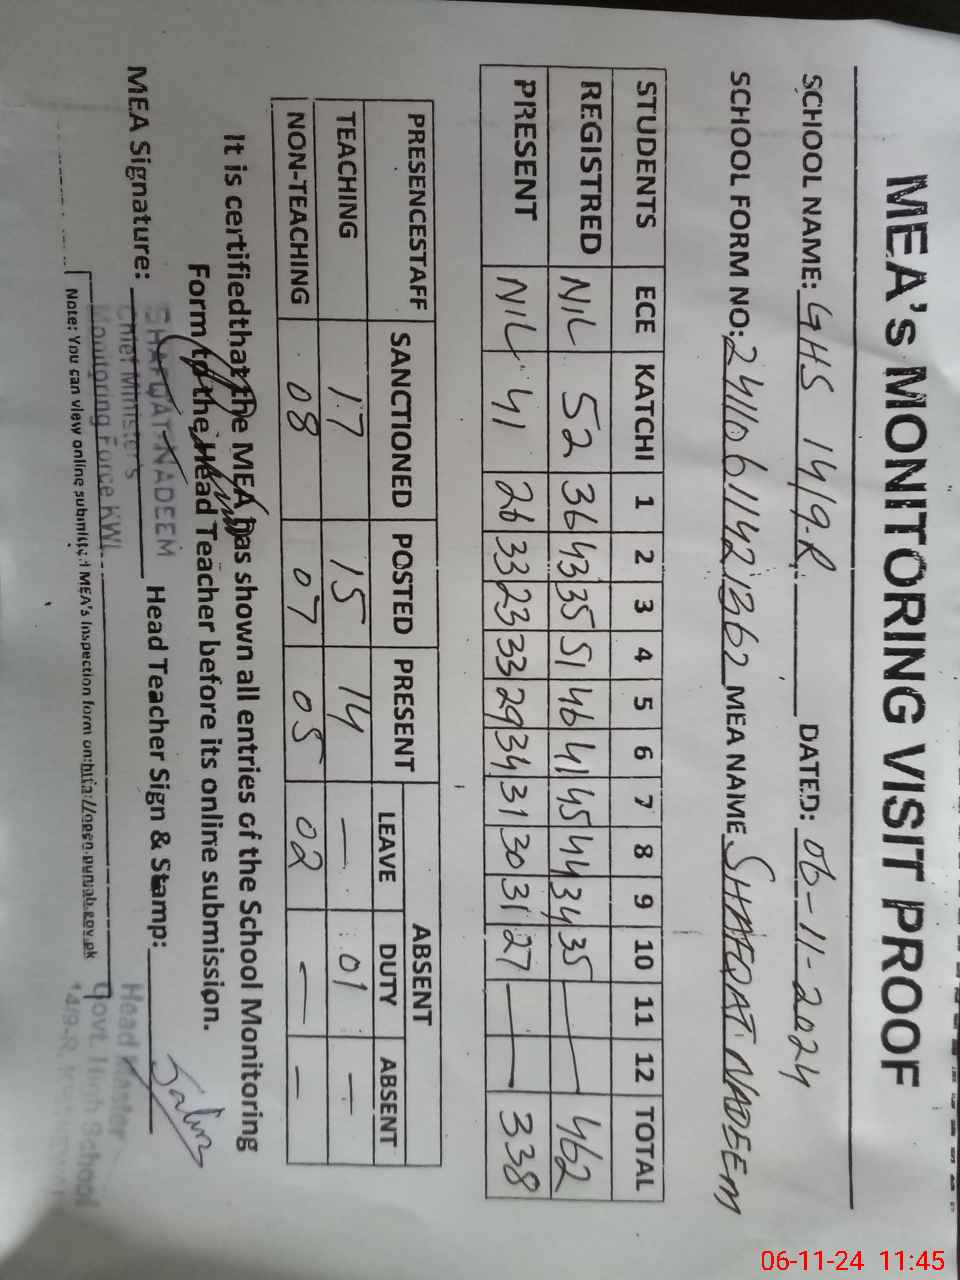 MEA's MONITORING VISIT PROOF
SCHOOL NAME: GHS 14/9-R DATED: 06-11-2024
SCHOOL FORM NO: 2411061142 1362 MEA NAME SHAFQAT NADEEM
STUDENTS ECE KATCHI 1 2 3 4 5 6 7 8 9 10 11 12 TOTAL
REGISTRED NIL 52 36 43 35 51 46 41 45 44 34 35 — 462
PRESENT NIL 41 26 33 23 33 29 34 31 30 31 27 — 338
PRESENCESTAFF SANCTIONED POSTED PRESENT ABSENT
LEAVE DUTY ABSENT
TEACHING 17 15 14 — 01 —
NON-TEACHING 08 07 05 02 — —
It is certifiedthat the MEA has shown all entries of the School Monitoring
Form to the Head Teacher before its online submission.
MEA Signature: Head Teacher Sign & Stamp:
SHAFQAT NADEEM
Chief Minister's
Monitoring Force KWL
Head Master
Govt. High School
14/9-R,
Note: You can view online submitted MEA's Inspection form on:http://open.punjab.gov.pk
06-11-24 11:45